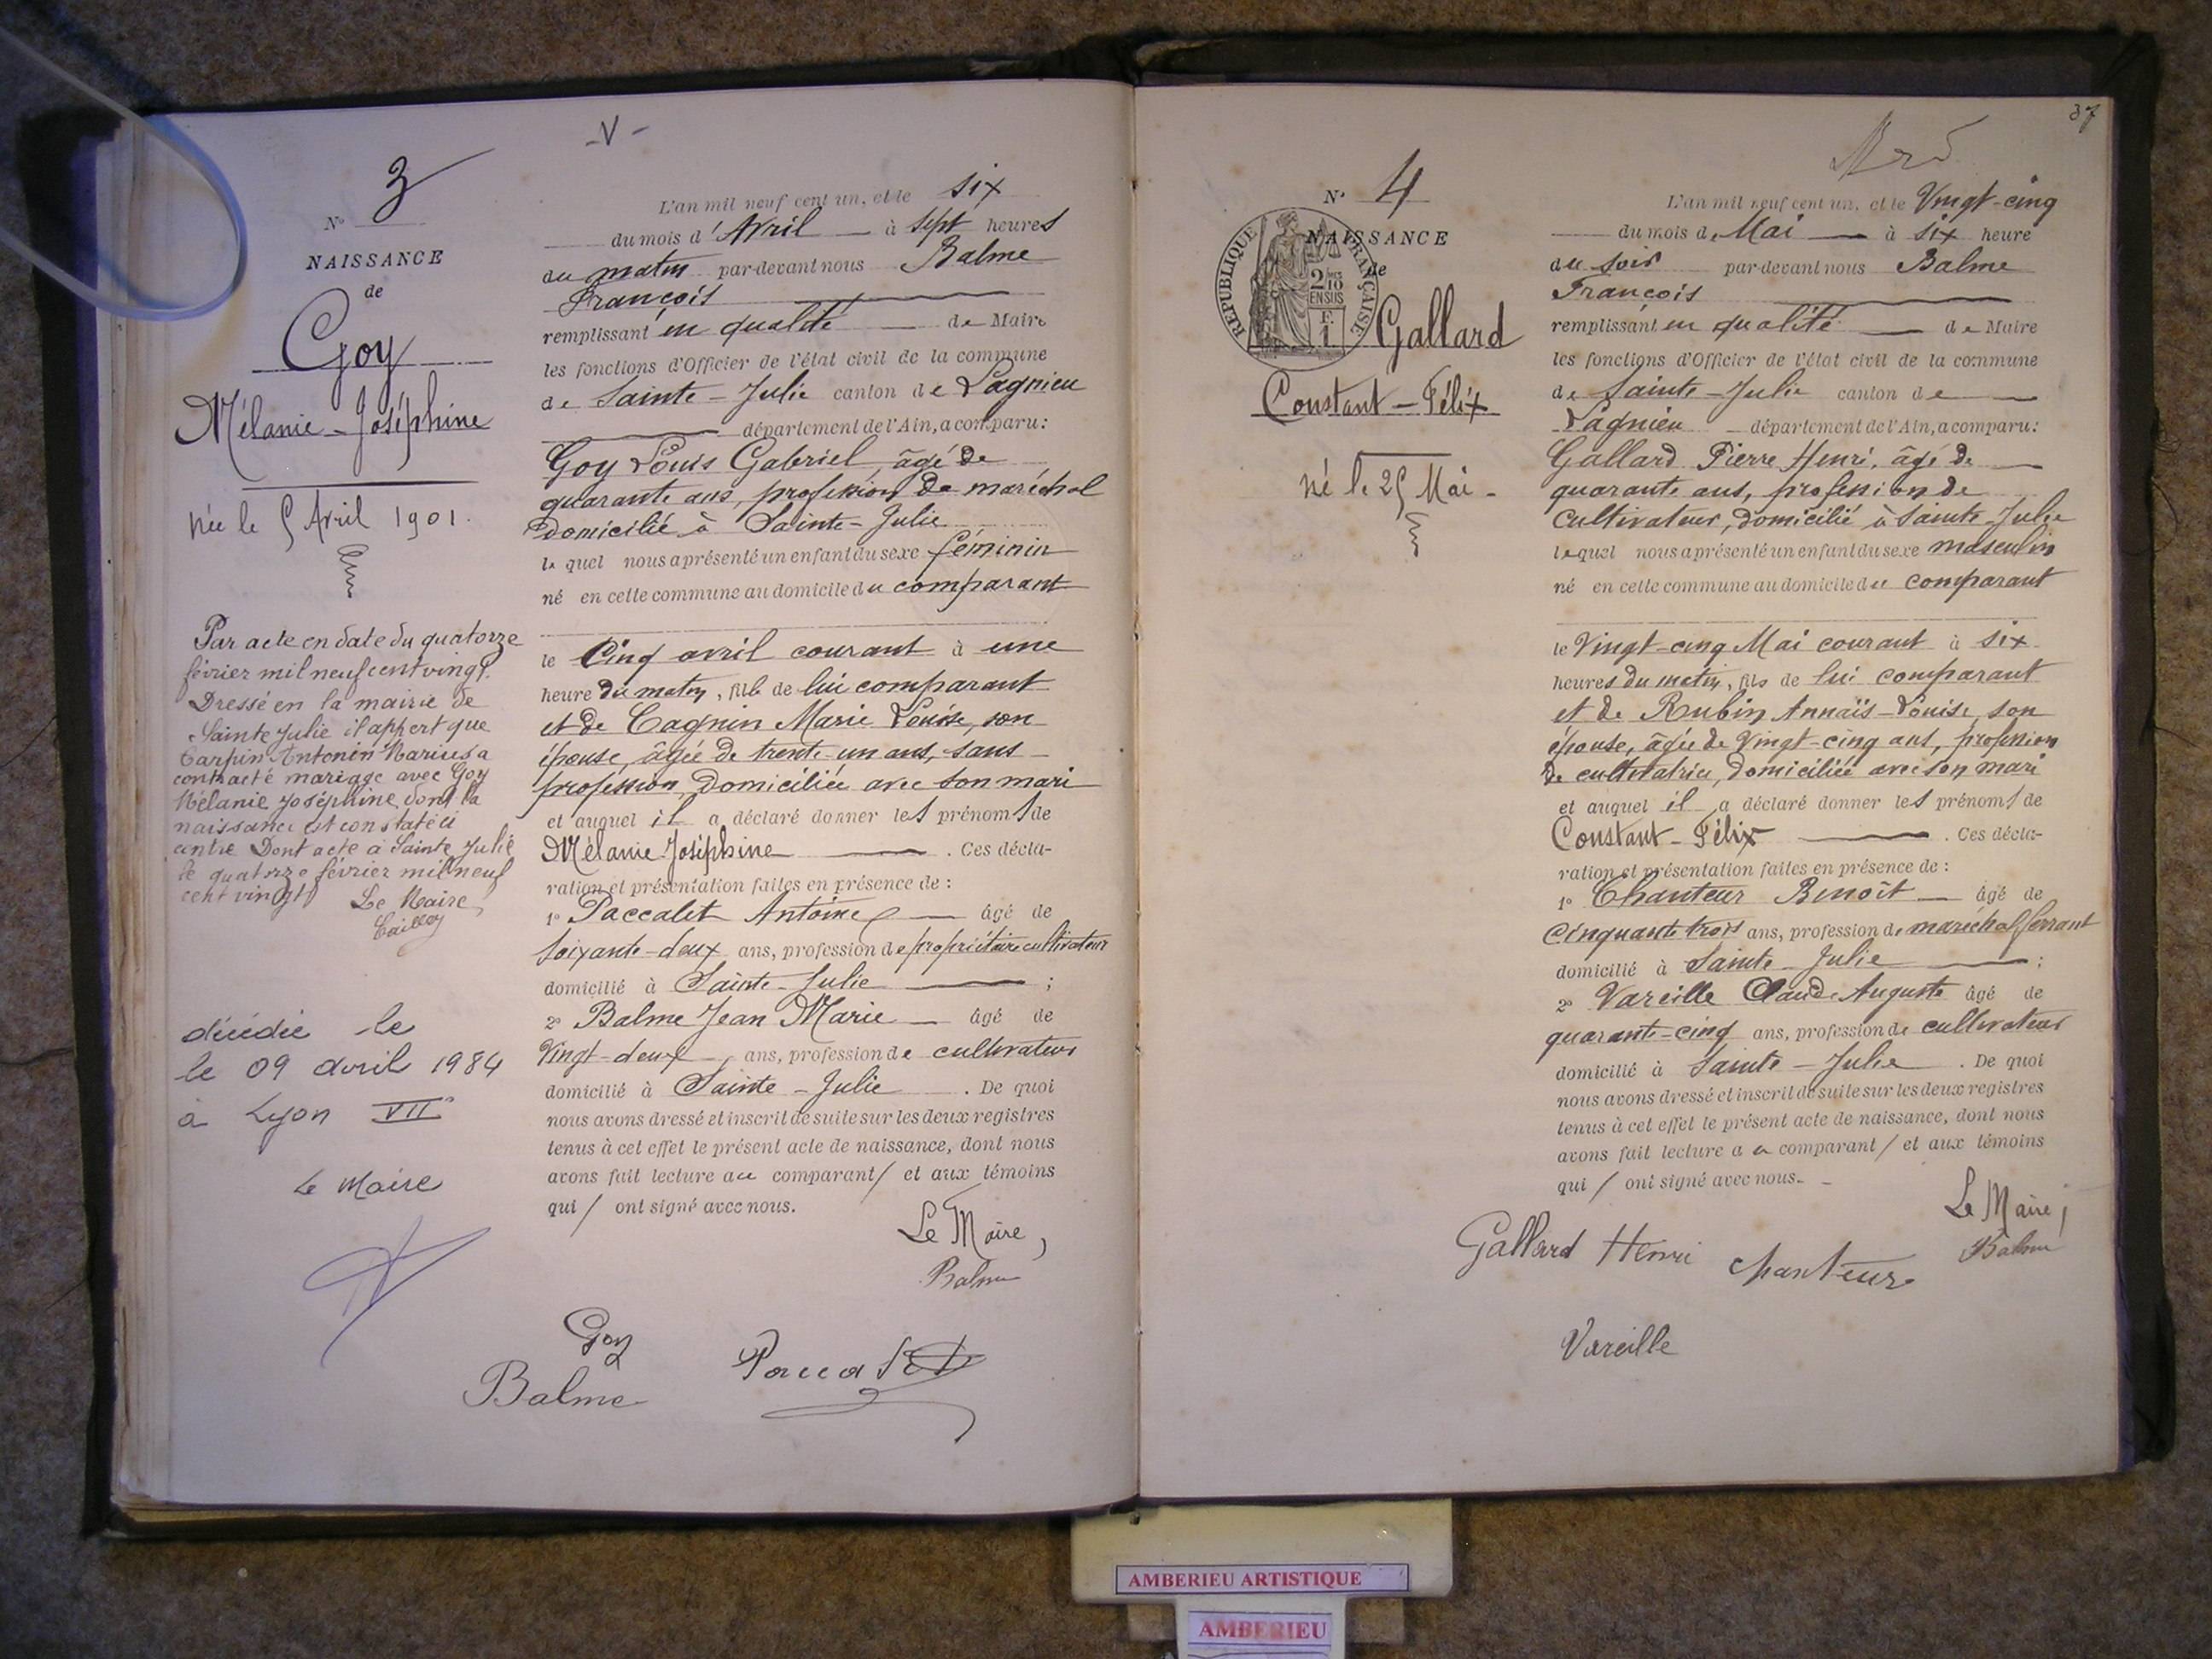 -V-
N° 3
NAISSANCE
de
Goy
Mélanie-Joséphine
Née le 5 Avril 1901.
Par acte en date du quatorze
février mil neuf cent vingt.
Dressé en la mairie de
Sainte Julie il appert que
Carpin Antonin Marius a
contracté mariage avec Goy
Mélanie Joséphine dont la
naissance est constatée ci
contre Dont acte à Sainte Julie
le quatorze février mil neuf
cent vingt Le Maire,
décédée le
le 09 avril 1984
à Lyon VII°
Le Maire
L'an mil neuf cent un, et le six
du mois d'Avril à sept heures
du matin par-devant nous Balme
François
remplissant en qualité de Maire
les fonctions d'Officier de l'état civil de la commune
de Sainte-Julie canton de Lagnieu
département de l'Ain, a comparu:
Goy Louis Gabriel, âgé de
quarante ans, profession de maréchal
domicilié à Sainte-Julie
lequel nous a présenté un enfant du sexe féminin
né en cette commune au domicile du comparant
le Cinq avril courant à une
heure du matin, fille de lui comparant
et de Cagnin Marie Louise, son
épouse, âgée de trente-un ans, sans
profession, domiciliée avec son mari
et auquel il a déclaré donner les prénoms de
Mélanie Joséphine. Ces décla-
ration et présentation faites en présence de :
1° Paccalet Antoine âgé de
soixante-deux ans, profession de propriétaire cultivateur
domicilié à Sainte-Julie ;
2° Balme Jean Marie âgé de
Vingt-deux ans, profession de cultivateur
domicilié à Sainte-Julie. De quoi
nous avons dressé et inscrit de suite sur les deux registres
tenus à cet effet le présent acte de naissance, dont nous
avons fait lecture au comparant / et aux témoins
qui / ont signé avec nous.
Le Maire,
Balme
Goy
Balme Paccalet
37
N° 4
NAISSANCE
de
RÉPUBLIQUE FRANÇAISE
2/10
EN SUS
F.
1.
Gallard
Constant-Félix
Né le 25 Mai-
L'an mil neuf cent un, et le Vingt-cinq
du mois de Mai à six heure
du soir par-devant nous Balme
François
remplissant en qualité de Maire
les fonctions d'Officier de l'état civil de la commune
de Sainte-Julie canton de
Lagnieu département de l'Ain, a comparu:
Gallard Pierre Henri, âgé de
quarante ans, profession de
cultivateur, domicilié à Sainte-Julie
lequel nous a présenté un enfant du sexe masculin
né en cette commune au domicile du comparant
le Vingt-cinq Mai courant à six
heures du matin, fils de lui comparant
et de Rubin Annaïs-Louise, son
épouse, âgée de Vingt-cinq ans, profession
de cultivatrice, domiciliée avec son mari
et auquel il a déclaré donner les prénoms de
Constant-Félix. Ces décla-
ration et présentation faites en présence de :
1° Chanteur Benoît âgé de
Cinquante trois ans, profession de maréchal ferrant
domicilié à Sainte-Julie ;
2° Vareille Claude Auguste âgé de
quarante-cinq ans, profession de cultivateur
domicilié à Sainte-Julie. De quoi
nous avons dressé et inscrit de suite sur les deux registres
tenus à cet effet le présent acte de naissance, dont nous
avons fait lecture au comparant / et aux témoins
qui / ont signé avec nous.
Le Maire,
Balme
Gallard Henri Chanteur
Vareille
AMBERIEU ARTISTIQUE
AMBERIEU